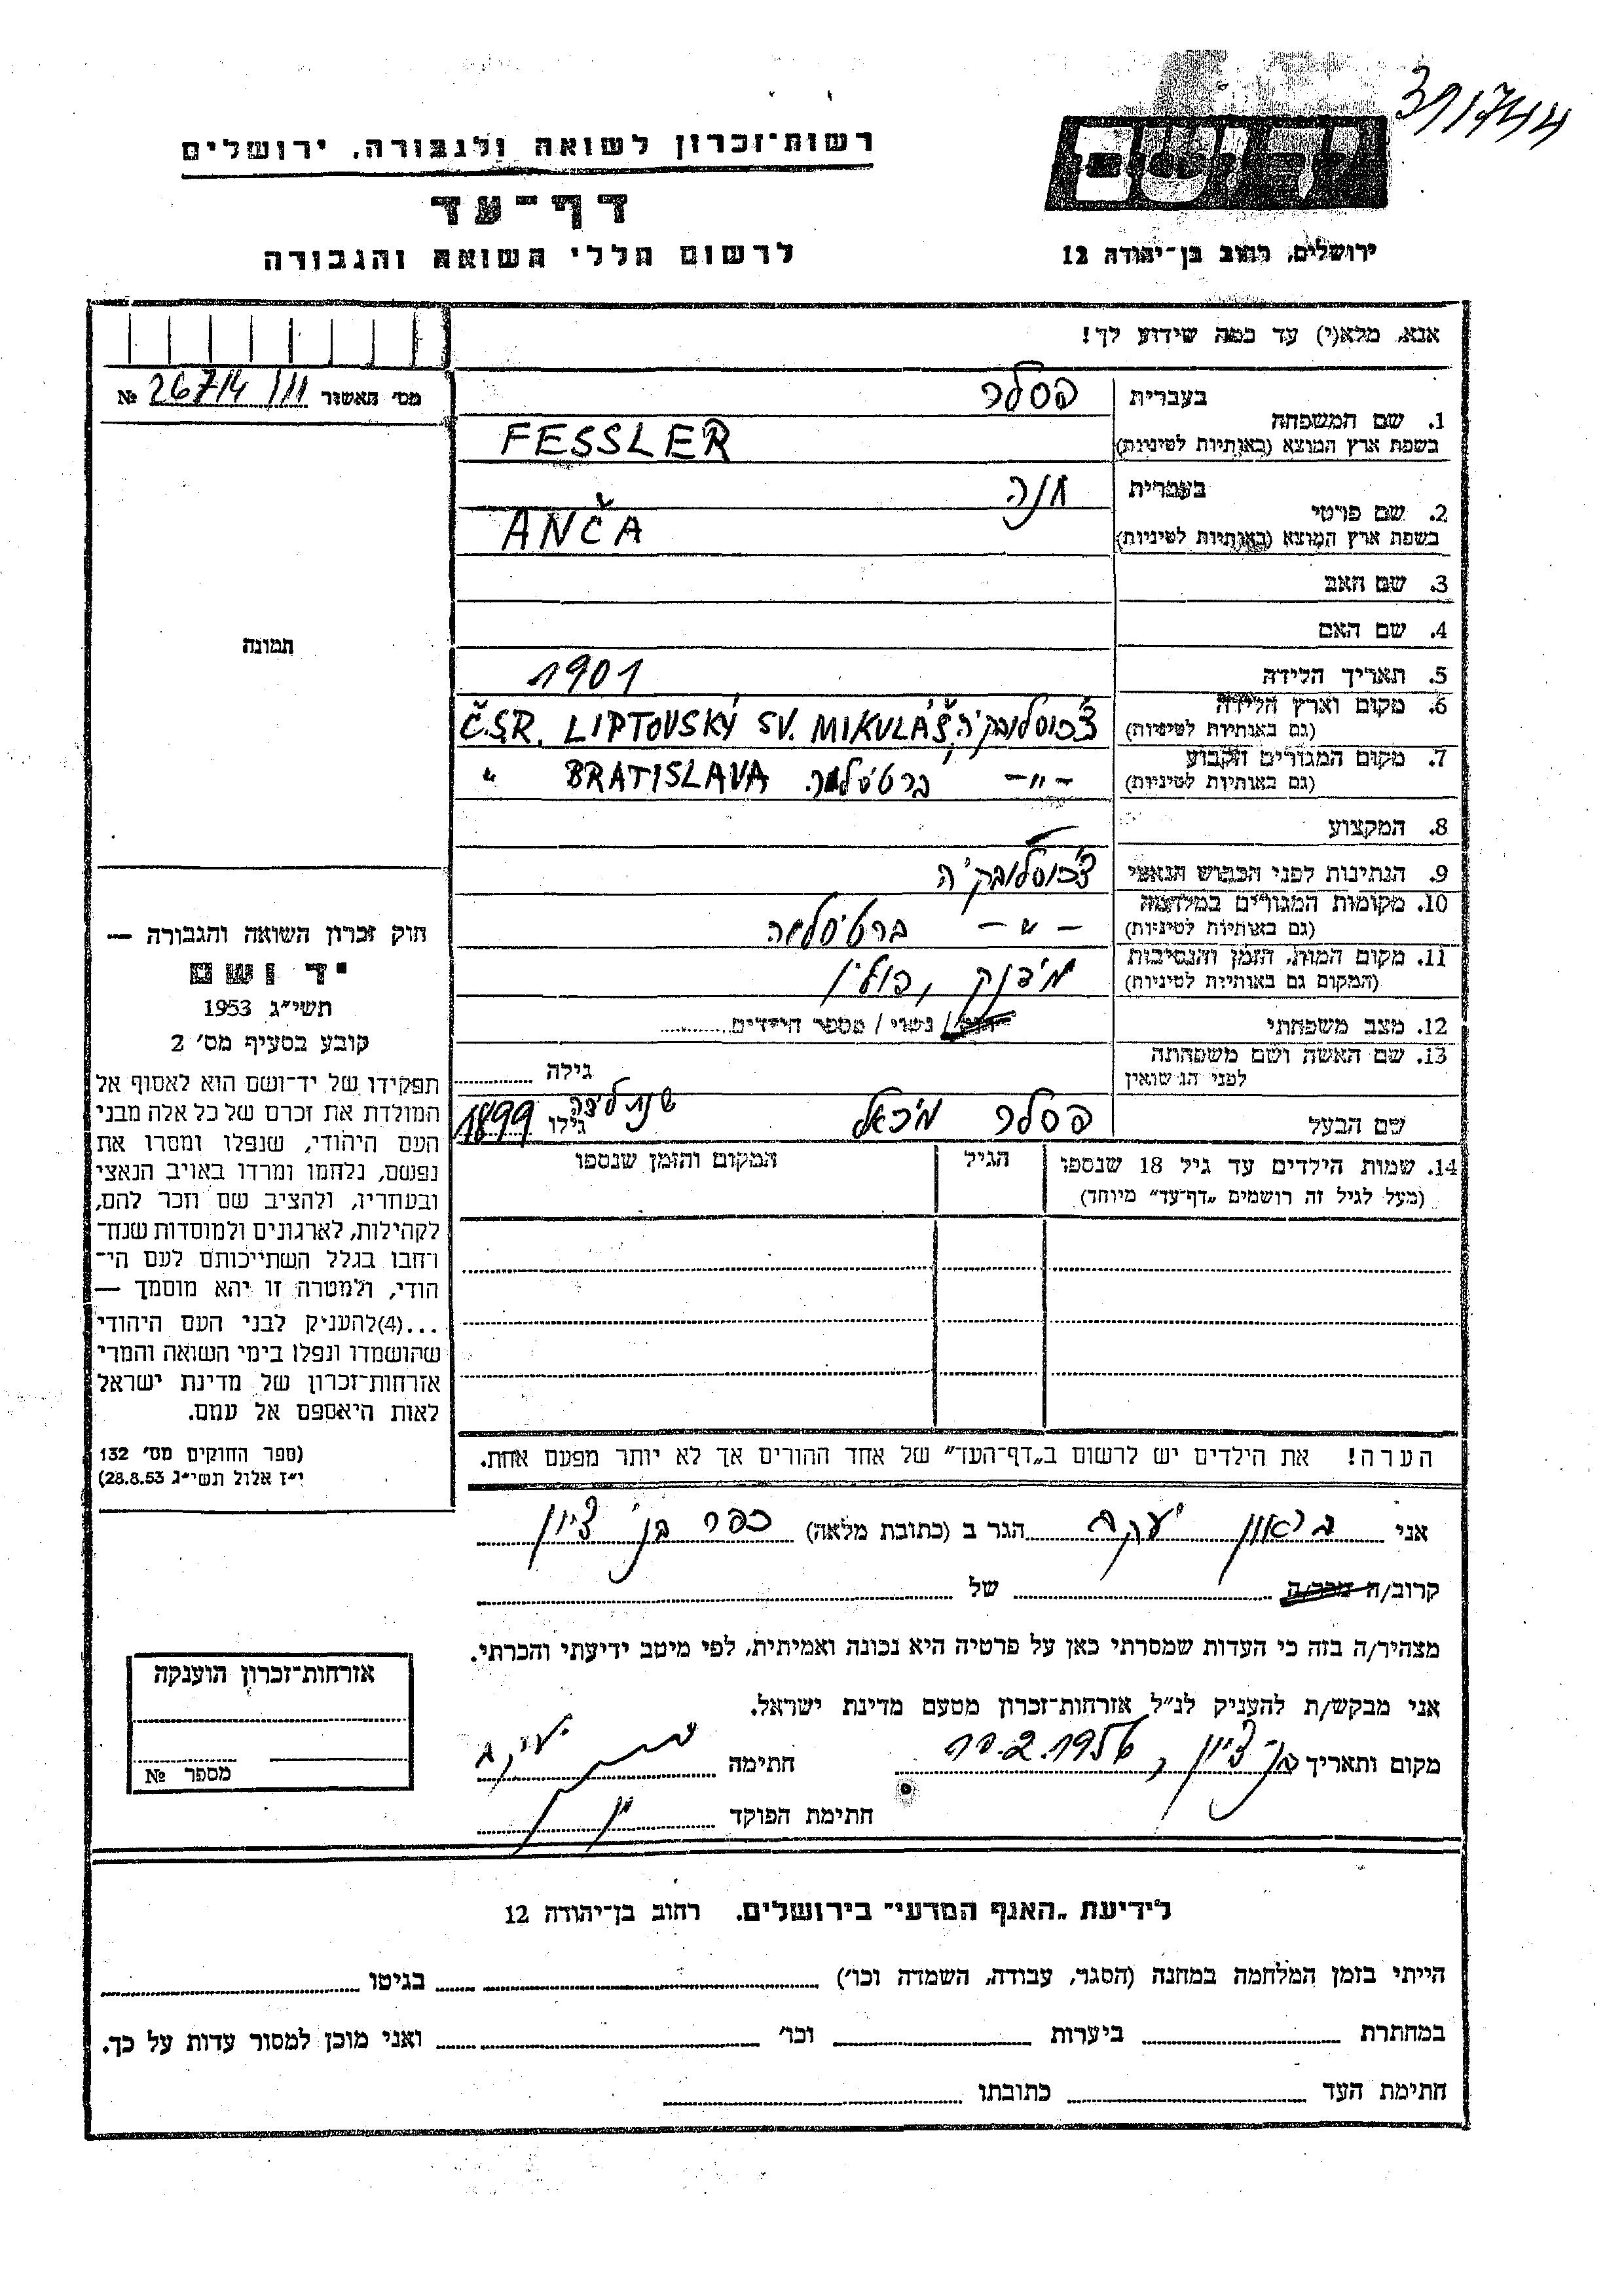 31744
רשות־זכרון לשואה ולגבורה. ירושלים
דף־עד
לרשום חללי השואה והגבורה
יד ושם
ירושלים, רחוב בן־יהודה 12
אנא, מלא(י) עד כמה שידוע לך!
מס׳ האשור № 26714 /11
1. שם המשפחה
בעברית פסלר
בשפת ארץ המוצא (באותיות לטיניות) FESSLER
2. שם פרטי
בעברית חנה
בשפת ארץ המוצא (באותיות לטיניות) ANČA
3. שם האב
4. שם האם
תמונה
5. תאריך הלידה 1901
6. מקום וארץ הלידה
(גם באותיות לטיניות) צ׳כוסלובקיה, Č.S.R. LIPTOVSKÝ SV. MIKULÁŠ
7. מקום המגורים הקבוע
(גם באותיות לטיניות) –״– ברטיסלבה. BRATISLAVA ״
8. המקצוע
9. הנתינות לפני הכבוש הנאצי צ׳כוסלובקיה
10. מקומות המגורים במלחמה
(גם באותיות לטיניות) –״– ברטיסלבה
11. מקום המות, הזמן והנסיבות
(המקום גם באותיות לטיניות) מידנק, פולין
12. מצב משפחתי / נשוי / מספר הילדים
13. שם האשה ושם משפחתה
לפני הנישואין
גילה
שם הבעל פסלר מיכאל שנת לידה גילו 1899
14. שמות הילדים עד גיל 18 שנספו
(מעל לגיל זה רושמים „דף־עד״ מיוחד)
הגיל
המקום והזמן שנספו
הערה! את הילדים יש לרשום ב„דף־העד״ של אחד ההורים אך לא יותר מפעם אחת.
חוק זכרון השואה והגבורה —
יד ושם
תשי״ג 1953
קובע בסעיף מס׳ 2
תפקידו של יד־ושם הוא לאסוף אל
המולדת את זכרם של כל אלה מבני
העם היהודי, שנפלו ומסרו את
נפשם, נלחמו ומרדו באויב הנאצי
ובעוזריו, ולהציב שם וזכר להם,
לקהילות, לארגונים ולמוסדות שנח־
רבו בגלל השתייכותם לעם הי־
הודי, ולמטרה זו יהא מוסמך —
...(4)להעניק לבני העם היהודי
שהושמדו ונפלו בימי השואה והמרי
אזרחות־זכרון של מדינת ישראל
לאות היאספם אל עמם.
(ספר החוקים מס׳ 132
י״ז אלול תשי״ג 28.8.53)
אני בראון יעקב הגר ב (כתובת מלאה) כפר בן ציון
קרוב/ה מכר/ה של
מצהיר/ה בזה כי העדות שמסרתי כאן על פרטיה היא נכונה ואמיתית, לפי מיטב ידיעתי והכרתי.
אני מבקש/ת להעניק לנ״ל אזרחות־זכרון מטעם מדינת ישראל.
מקום ותאריך בן־ציון, 2.1956 חתימה יעקב
חתימת הפוקד
אזרחות־זכרון הוענקה
מספר №
לידיעת „האגף המדעי״ בירושלים. רחוב בן־יהודה 12
הייתי בזמן המלחמה במחנה (הסגר, עבודה, השמדה וכו׳) בגיטו
במחתרת ביערות וכו׳ ואני מוכן למסור עדות על כך.
חתימת העד כתובתו